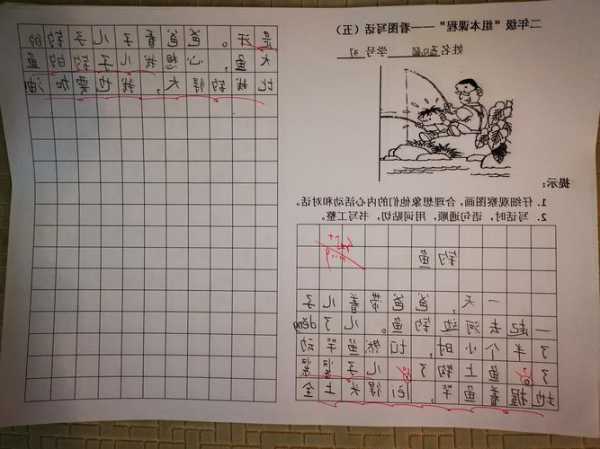 二年级“组本课程”——看图写话（五）
姓名 学号 27
提示：
1. 仔细观察图画，合理想象他们的内心活动和对话。
2. 写话时，语句通顺，用词贴切，书写工整。
钓鱼
一天，爸爸带着儿子
一起去河边钓鱼。儿了děng
了半个小时，切然鱼竿动
了 鱼上钩了 儿子紧紧
地握着鱼竿，得头上全
是汗。爸爸看着儿子钓的
大鱼，心想我儿子钓的鱼
比我钓得大，我也要加油